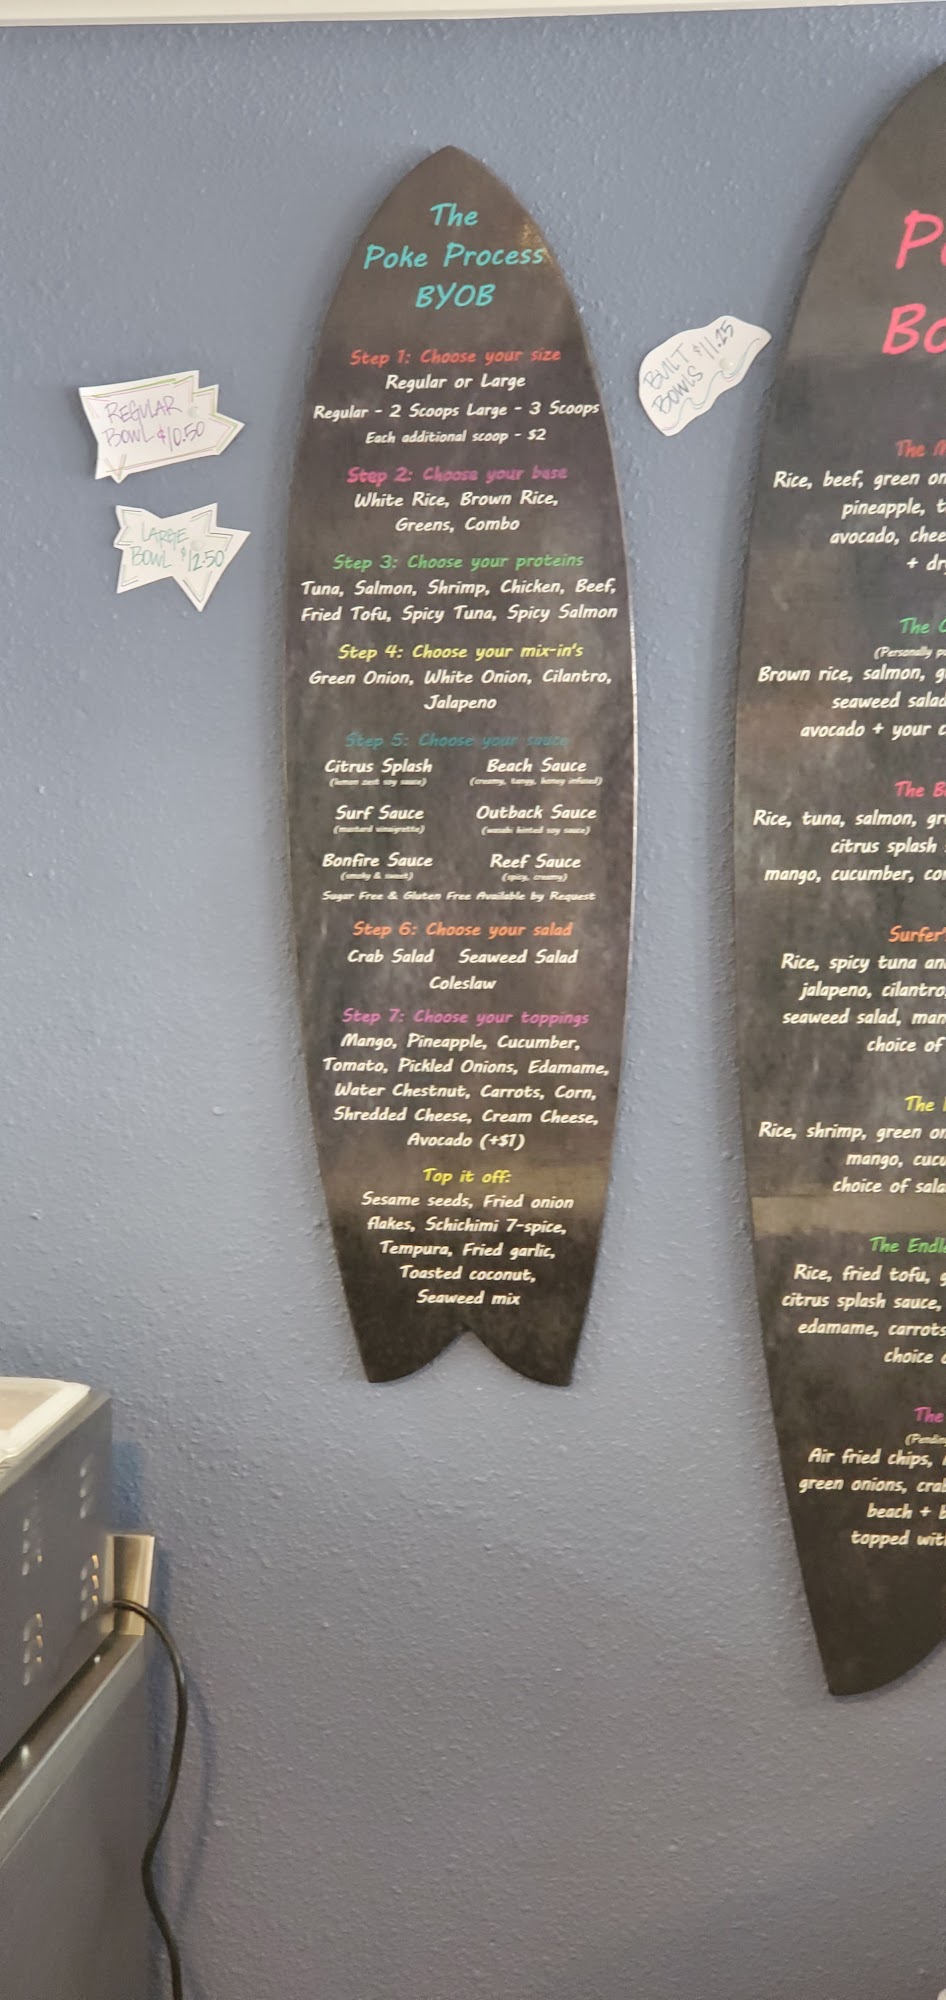 The
Poke Process
BYOB
Step 1: Choose your size
Regular or Large
Regular - 2 Scoops Large - 3 Scoops
Each additional scoop - $2
Step 2: Choose your base
White Rice, Brown Rice,
Greens, Combo
Step 3: Choose your proteins
Tuna, Salmon, Shrimp, Chicken, Beef,
Fried Tofu, Spicy Tuna, Spicy Salmon
Step 4: Choose your mix-in's
Green Onion, White Onion, Cilantro,
Jalapeno
Step 5: Choose your sauce
Citrus Splash Beach Sauce
(lemon zest soy sauce) (creamy, tangy, honey infused)
Surf Sauce Outback Sauce
(mustard vinaigrette) (wasabi hinted soy sauce)
Bonfire Sauce Reef Sauce
(smoky & sweet) (spicy, creamy)
Sugar Free & Gluten Free Available by Request
Step 6: Choose your salad
Crab Salad Seaweed Salad
Coleslaw
Step 7: Choose your toppings
Mango, Pineapple, Cucumber,
Tomato, Pickled Onions, Edamame,
Water Chestnut, Carrots, Corn,
Shredded Cheese, Cream Cheese,
Avocado (+$1)
Top it off:
Sesame seeds, Fried onion
flakes, Schichimi 7-spice,
Tempura, Fried garlic,
Toasted coconut,
Seaweed mix
REGULAR
BOWL $10.50
LARGE
BOWL $12.50
BUILT $11.25
BOWLS
The
Rice, beef, green
pineapple,
avocado,
+
The
(Personally
Brown rice, salmon,
seaweed salad
avocado + your
The
Rice, tuna, salmon,
citrus splash
mango, cucumber,
Surfer'
Rice, spicy tuna
jalapeno, cilantro
seaweed salad,
choice of
The
Rice, shrimp, green
mango,
choice of
The
Rice, fried tofu,
citrus splash sauce,
edamame, carrots
choice
The
Air fried chips,
green onions,
beach +
topped